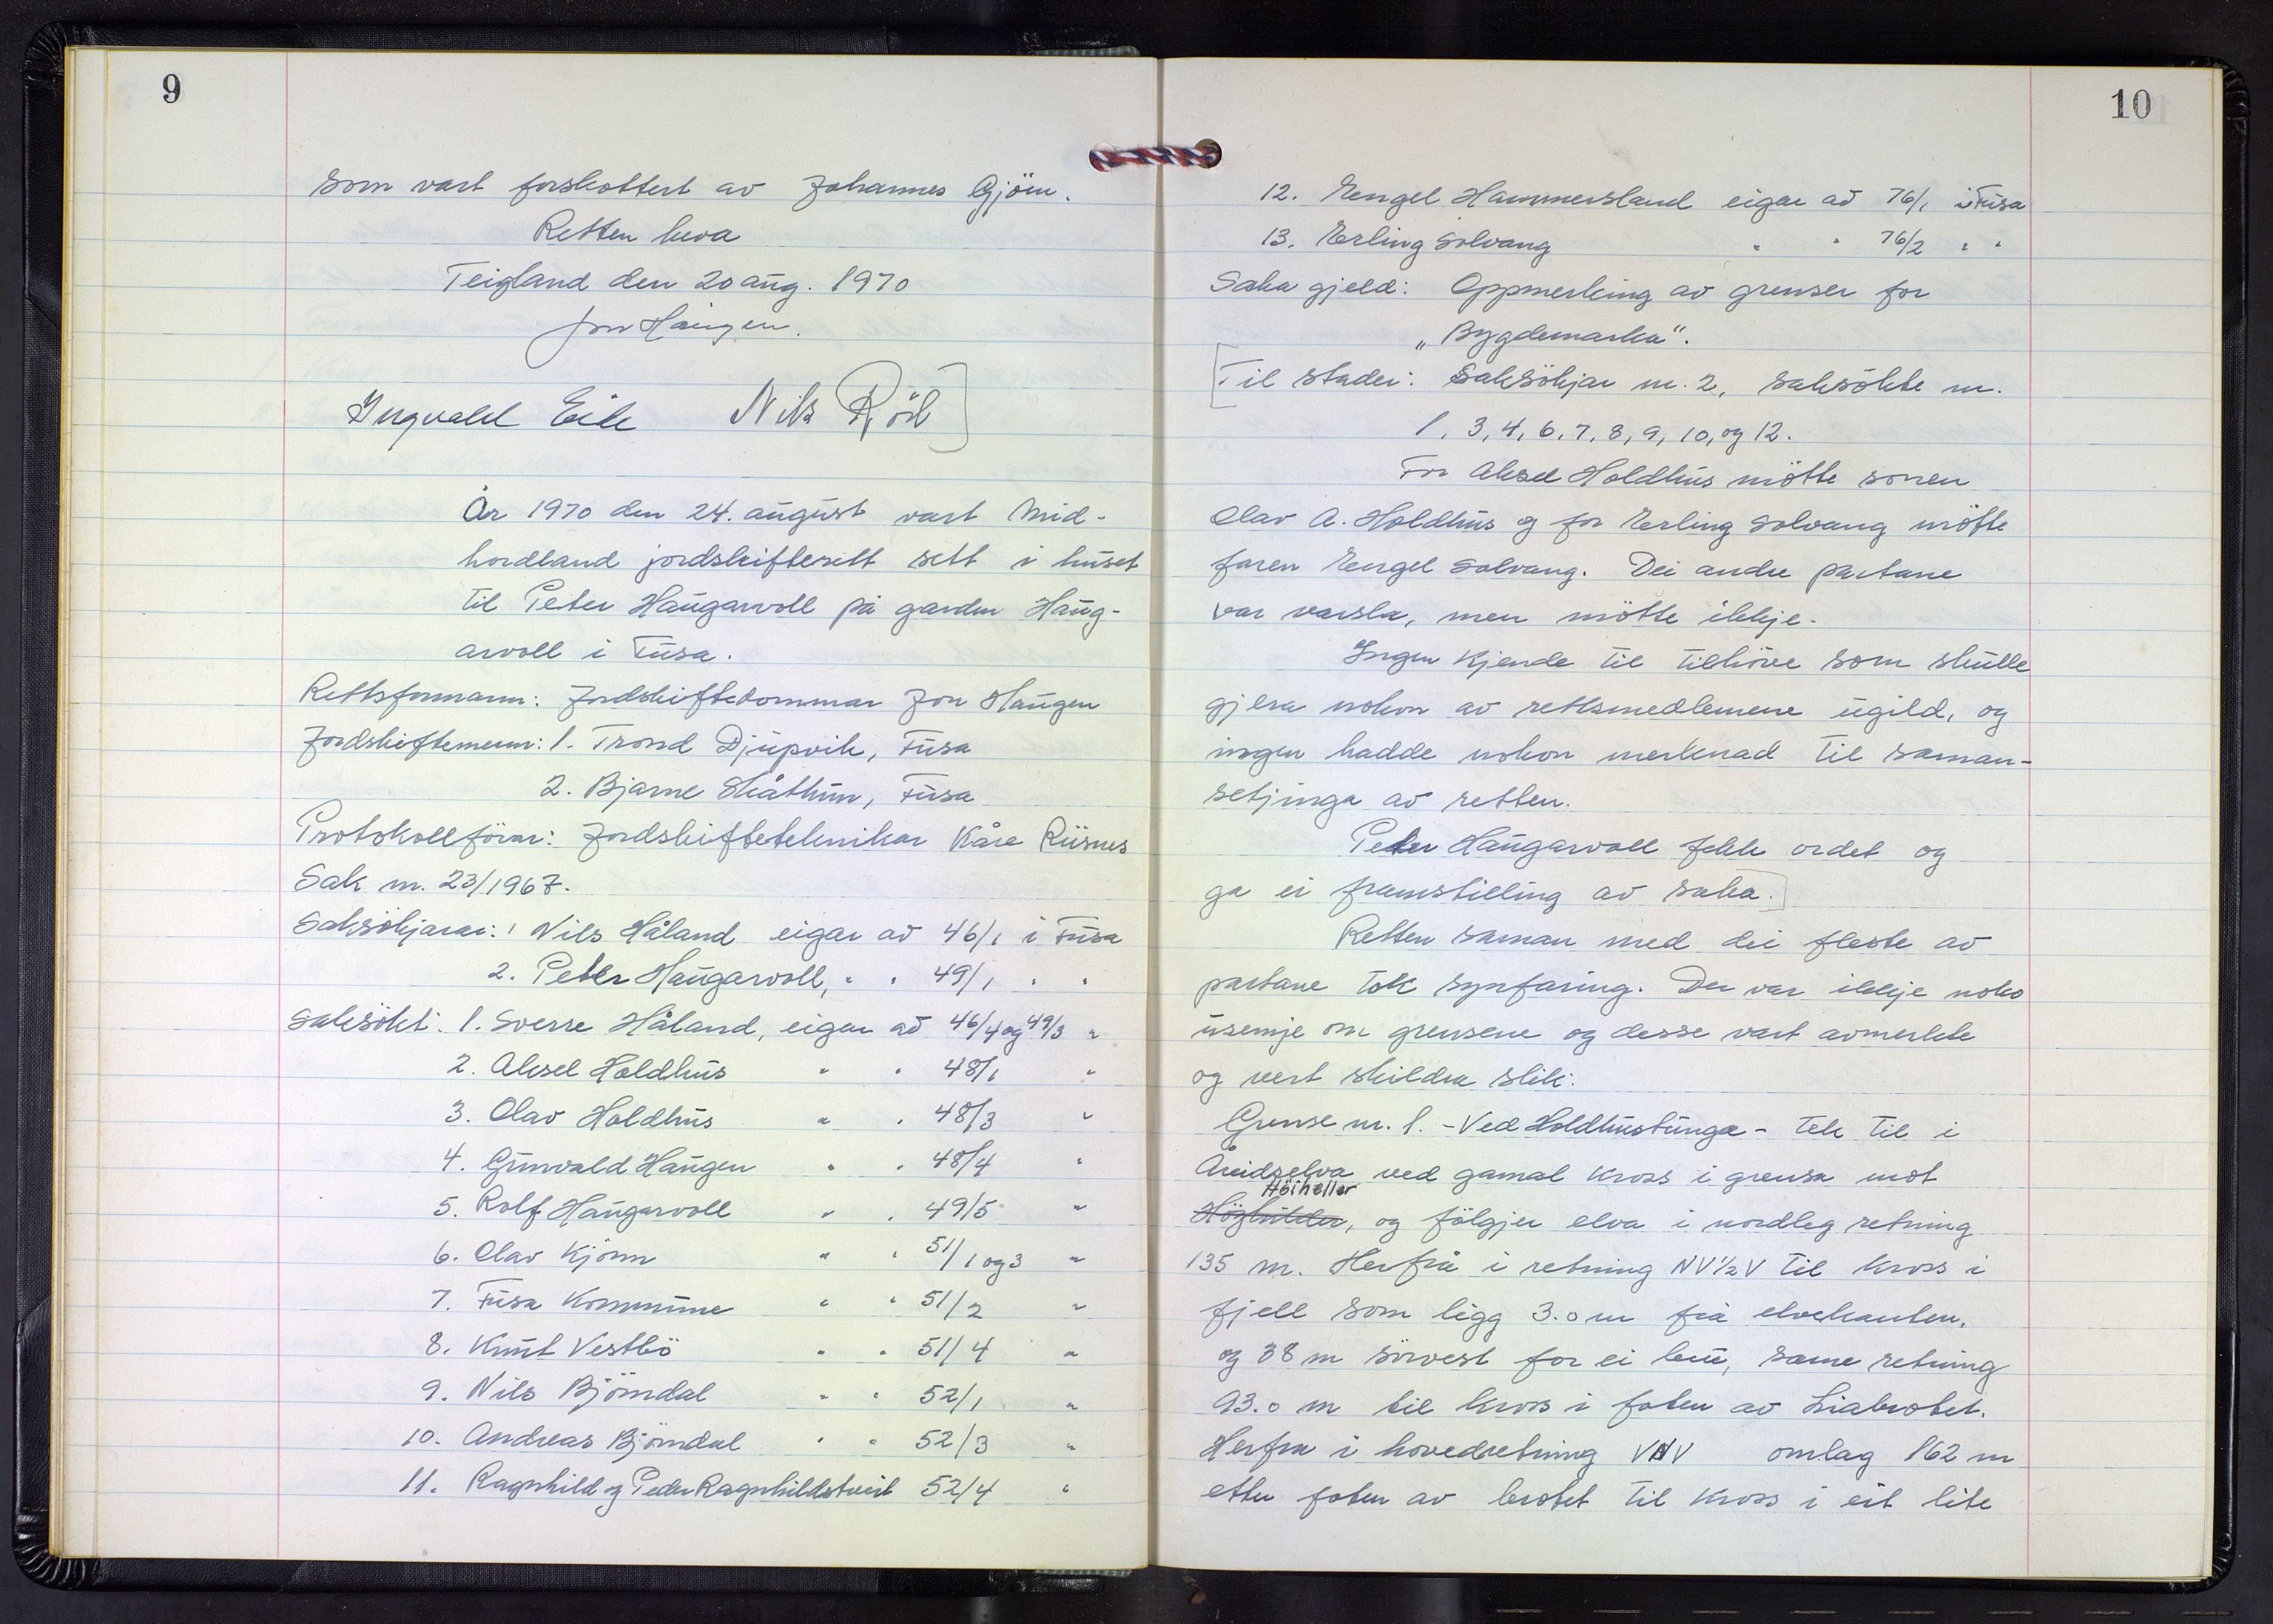 9
som vart forskottert av Johannes Gjöen.
Retten heva
Teigland den 20 aug. 1970
Jon Haugen.
Ingvald Eide Nils Röd ]
År 1970 den 24. august vart Mid-
hordland jordskifterett sett i huset
til Peter Haugarvoll på garden Haug-
arvoll i Fusa.
Rettsformann: Jordskiftedommar Jon Haugen
Jordskiftemenn: 1. Trond Djupvik, Fusa
2. Bjarne Skåthun, Fusa
Protokollförar: Jordskifteteknikar Kåre Riisnes
Sak nr. 23/1967.
Saksökjarar: 1 Nils Håland eigar av 46/1 i Fusa
2. Peter Haugarvoll, " " 49/1 " "
Saksökt: 1. Sverre Håland, eigar av 46/4 og 49/3 "
2. Aksel Holdhus " " 48/1 "
3. Olav Holdhus " " 48/3 "
4. Gunvald Haugen " " 48/4 "
5. Rolf Haugarvoll " " 49/5 "
6. Olav Kjönn " " 51/1 og 3 "
7. Fusa Kommune " " 51/2 "
8. Knut Vestbö " " 51/4 "
9. Nils Björndal " " 52/1 "
10. Andreas Björndal " " 52/3 "
11. Ragnhild og Peder Ragnhildstveit 52/4 "
10
12. Engel Hammersland eigar av 76/1 i Fusa
13. Erling Solvang " " 76/2 " "
Saka gjeld: Oppmerking av grenser for
„Bygdemarka".
[Til stades: Saksökjar nr. 2, saksökte nr.
1, 3, 4, 6, 7, 8, 9, 10, og 12.
For Aksel Holdhus mötte sonen
Olav A. Holdhus og for Erling Solvang mötte
faren Engel Solvang. Dei andre partane
var varsla, men mötte ikkje.
Ingen kjende til tilhöve som skulle
gjera nokon av rettsmedlemene ugild, og
ingen hadde nokon merknad til saman-
setjinga av retten.
Peter Haugarvoll fekk ordet og
ga ei framstilling av saka.]
Retten saman med dei fleste av
partane tok synfaring. Der var ikkje noko
usemje om grensene og desse vart avmerkte
og vert skildra slik:
Grense nr. 1. - Ved Holdhustunga - tek til i
Åreidselva ved gamal kross i grensa mot
Höiheller
, og fölgjer elva i nordleg retning
135 m. Herfrå i retning NV½V til kross i
fjell som ligg 3.0 m frå elvekanten,
og 38 m sörvest for ei bru, same retning
93.0 m til kross i foten av Liabrotet.
Herfra i hovedretning VNV omlag 162 m
etter foten av brotet til kross i eit lite